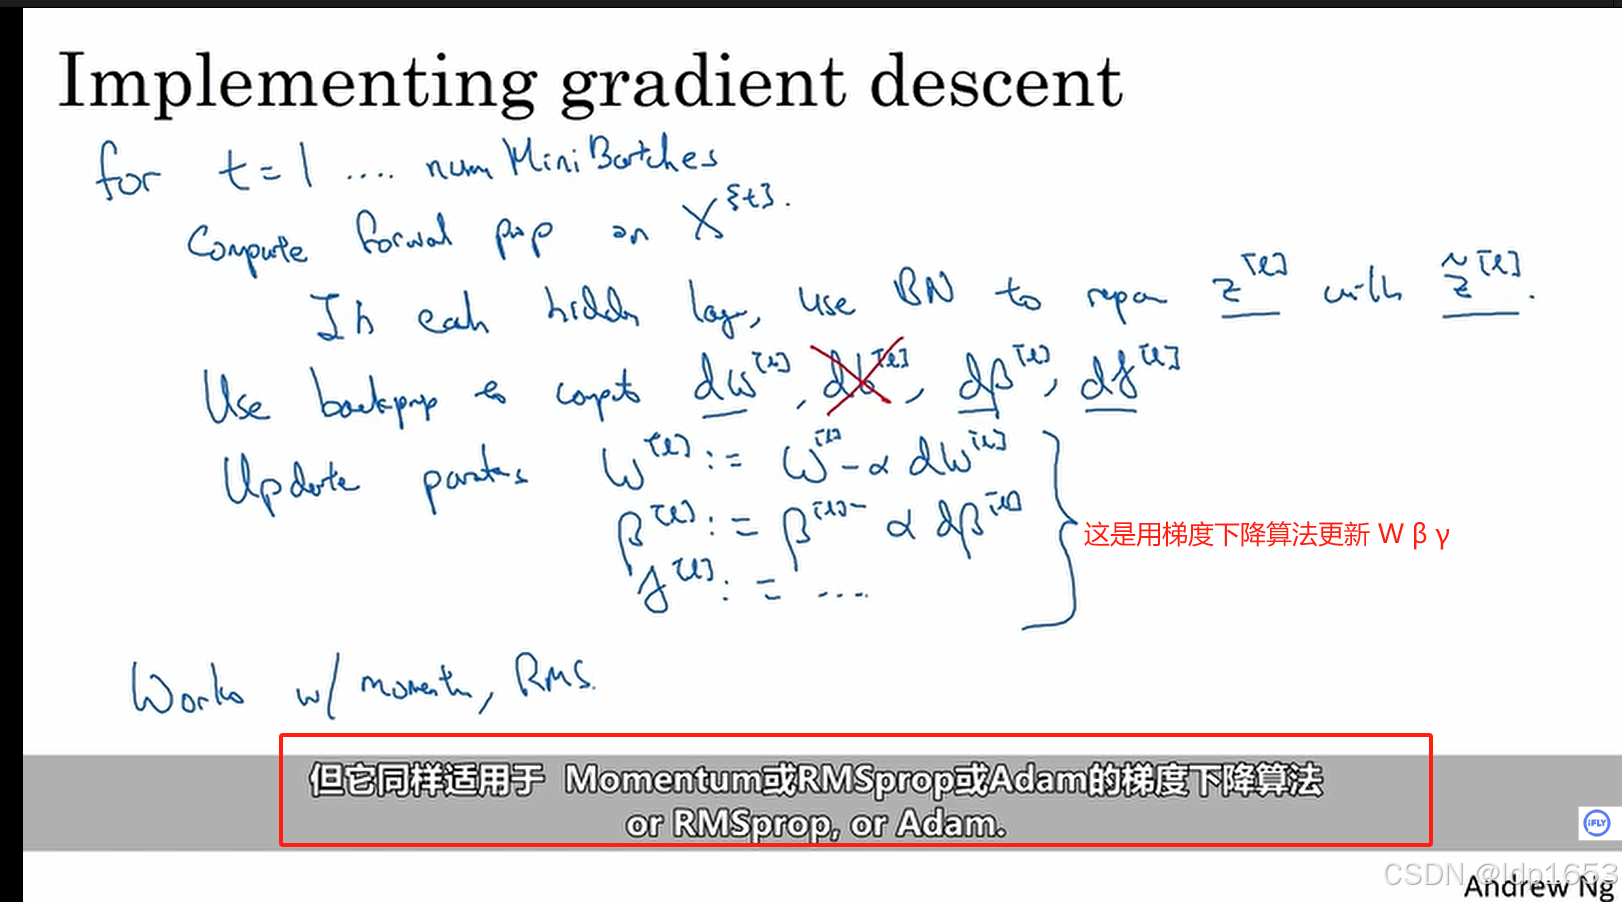 Implementing gradient descent
for t=1 .... numMiniBatches
Compute forward prop on X^{t}.
In each hidden layer, use BN to repar z^[l] with z̃^[l].
Use backprop to compute dw^[l], db^[l], dβ^[l], dγ^[l]
Update parameters w^[l] := w^[l] - α dw^[l]
β^[l] := β^[l] - α dβ^[l]
γ^[l] := ....
这是用梯度下降算法更新 W β γ
Works w/ momentum, RMS.
但它同样适用于 Momentum或RMSprop或Adam的梯度下降算法
or RMSprop, or Adam.
iFLY
CSDN @ldp1653
Andrew Ng